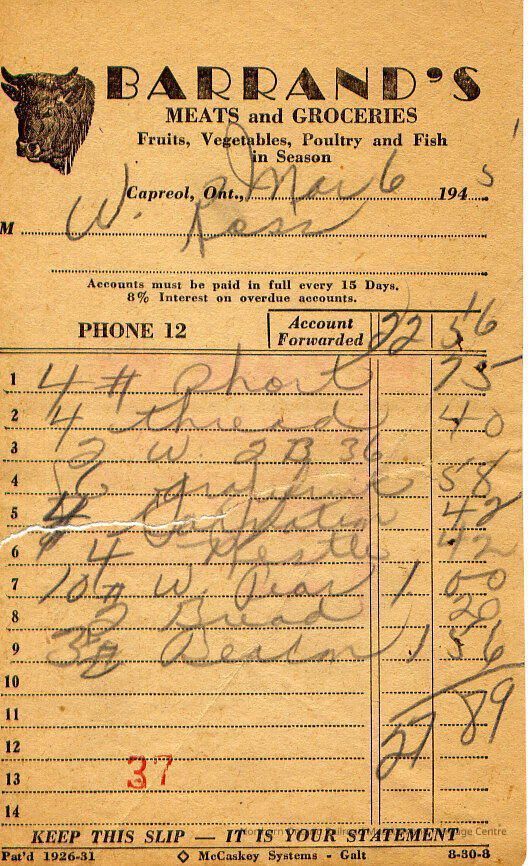 BARRAND'S
MEATS and GROCERIES
Fruits, Vegetables, Poultry and Fish
in Season
Capreol, Ont., Mar 6 1945
M W. Ross
Accounts must be paid in full every 15 Days.
8% Interest on overdue accounts.
PHONE 12 Account Forwarded 22 56
1 4 # Short 75
2 4 thread 40
3 2 W. 2 B 36
4 6 58
5 4 Carnation 42
6 4 Nestle 42
7 10 # W. Peas 1 00
8 2 Bread 20
9 3½ # Beacon 1 56
10
11 27 89
12
13 37
14
KEEP THIS SLIP — IT IS YOUR STATEMENT
Pat'd 1926-31 ◇ McCaskey Systems - Galt 8-30-3